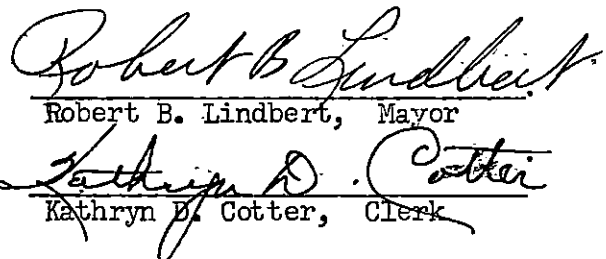 Robert B Lindbert
Robert B. Lindbert, Mayor
Kathryn D. Cotter
Kathryn D. Cotter, Clerk